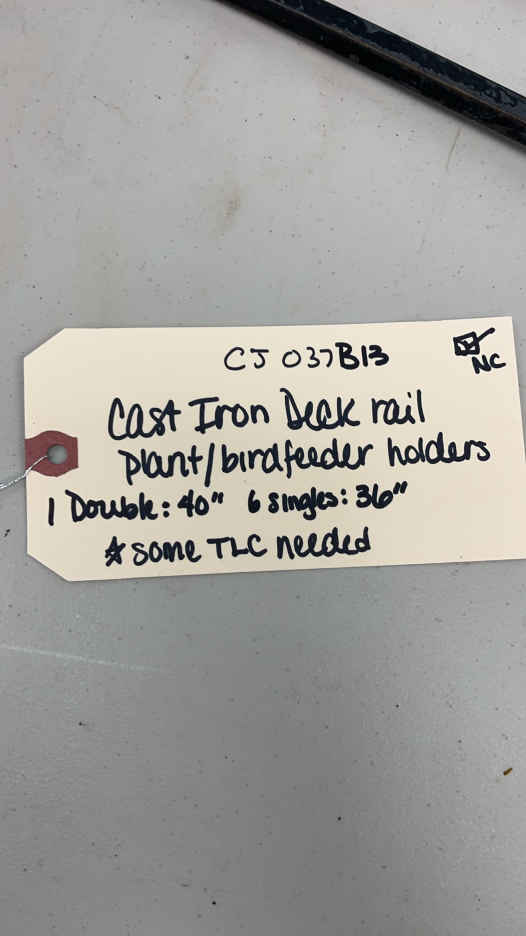 CJ 037B13
NC
Cast Iron Deck rail
plant/birdfeeder holders
1 Double: 40" 6 singles: 36"
☆ some TLC needed